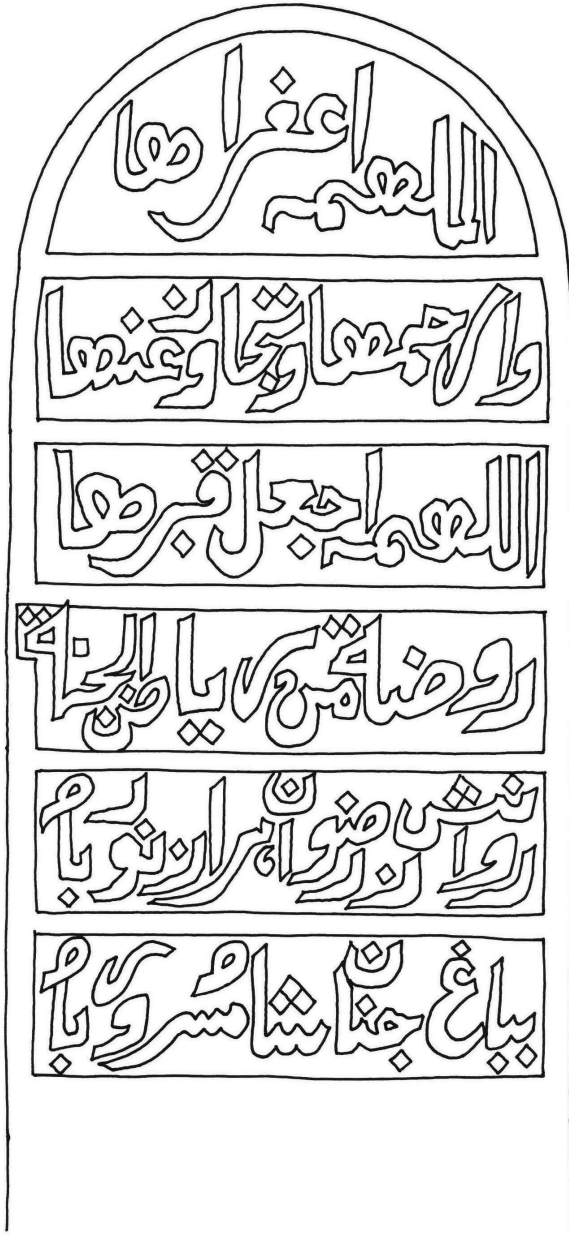 اللهم اغفر لها
وارحمها وتجاوز عنها
اللهم اجعل قبرها
روضة من رياض الجنة
روانش ز رضوان پر از نور باد
بباغ جنان شاد و مسرور باد